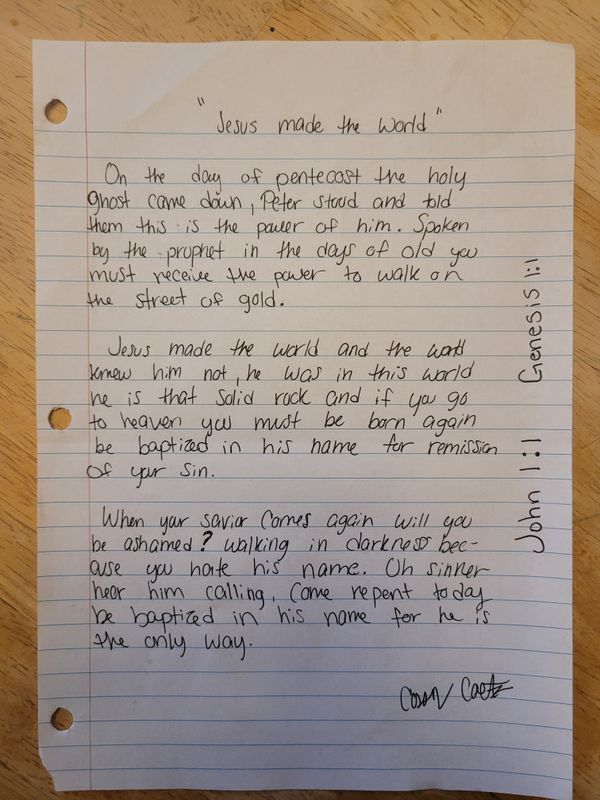 "Jesus made the World"
On the day of pentecost the holy
ghost came down, Peter stood and told
them this is the power of him. Spoken
by the prophet in the days of old you
must receive the power to walk on
the street of gold.
Jesus made the world and the world
knew him not, he was in this world
he is that solid rock and if you go
to heaven you must be born again
be baptized in his name for remission
of your sin.
When your savior comes again will you
be ashamed? walking in darkness bec-
ause you hate his name. Oh sinner
hear him calling, Come repent today
be baptized in his name for he is
the only way.
John 1:1 Genesis 1:1